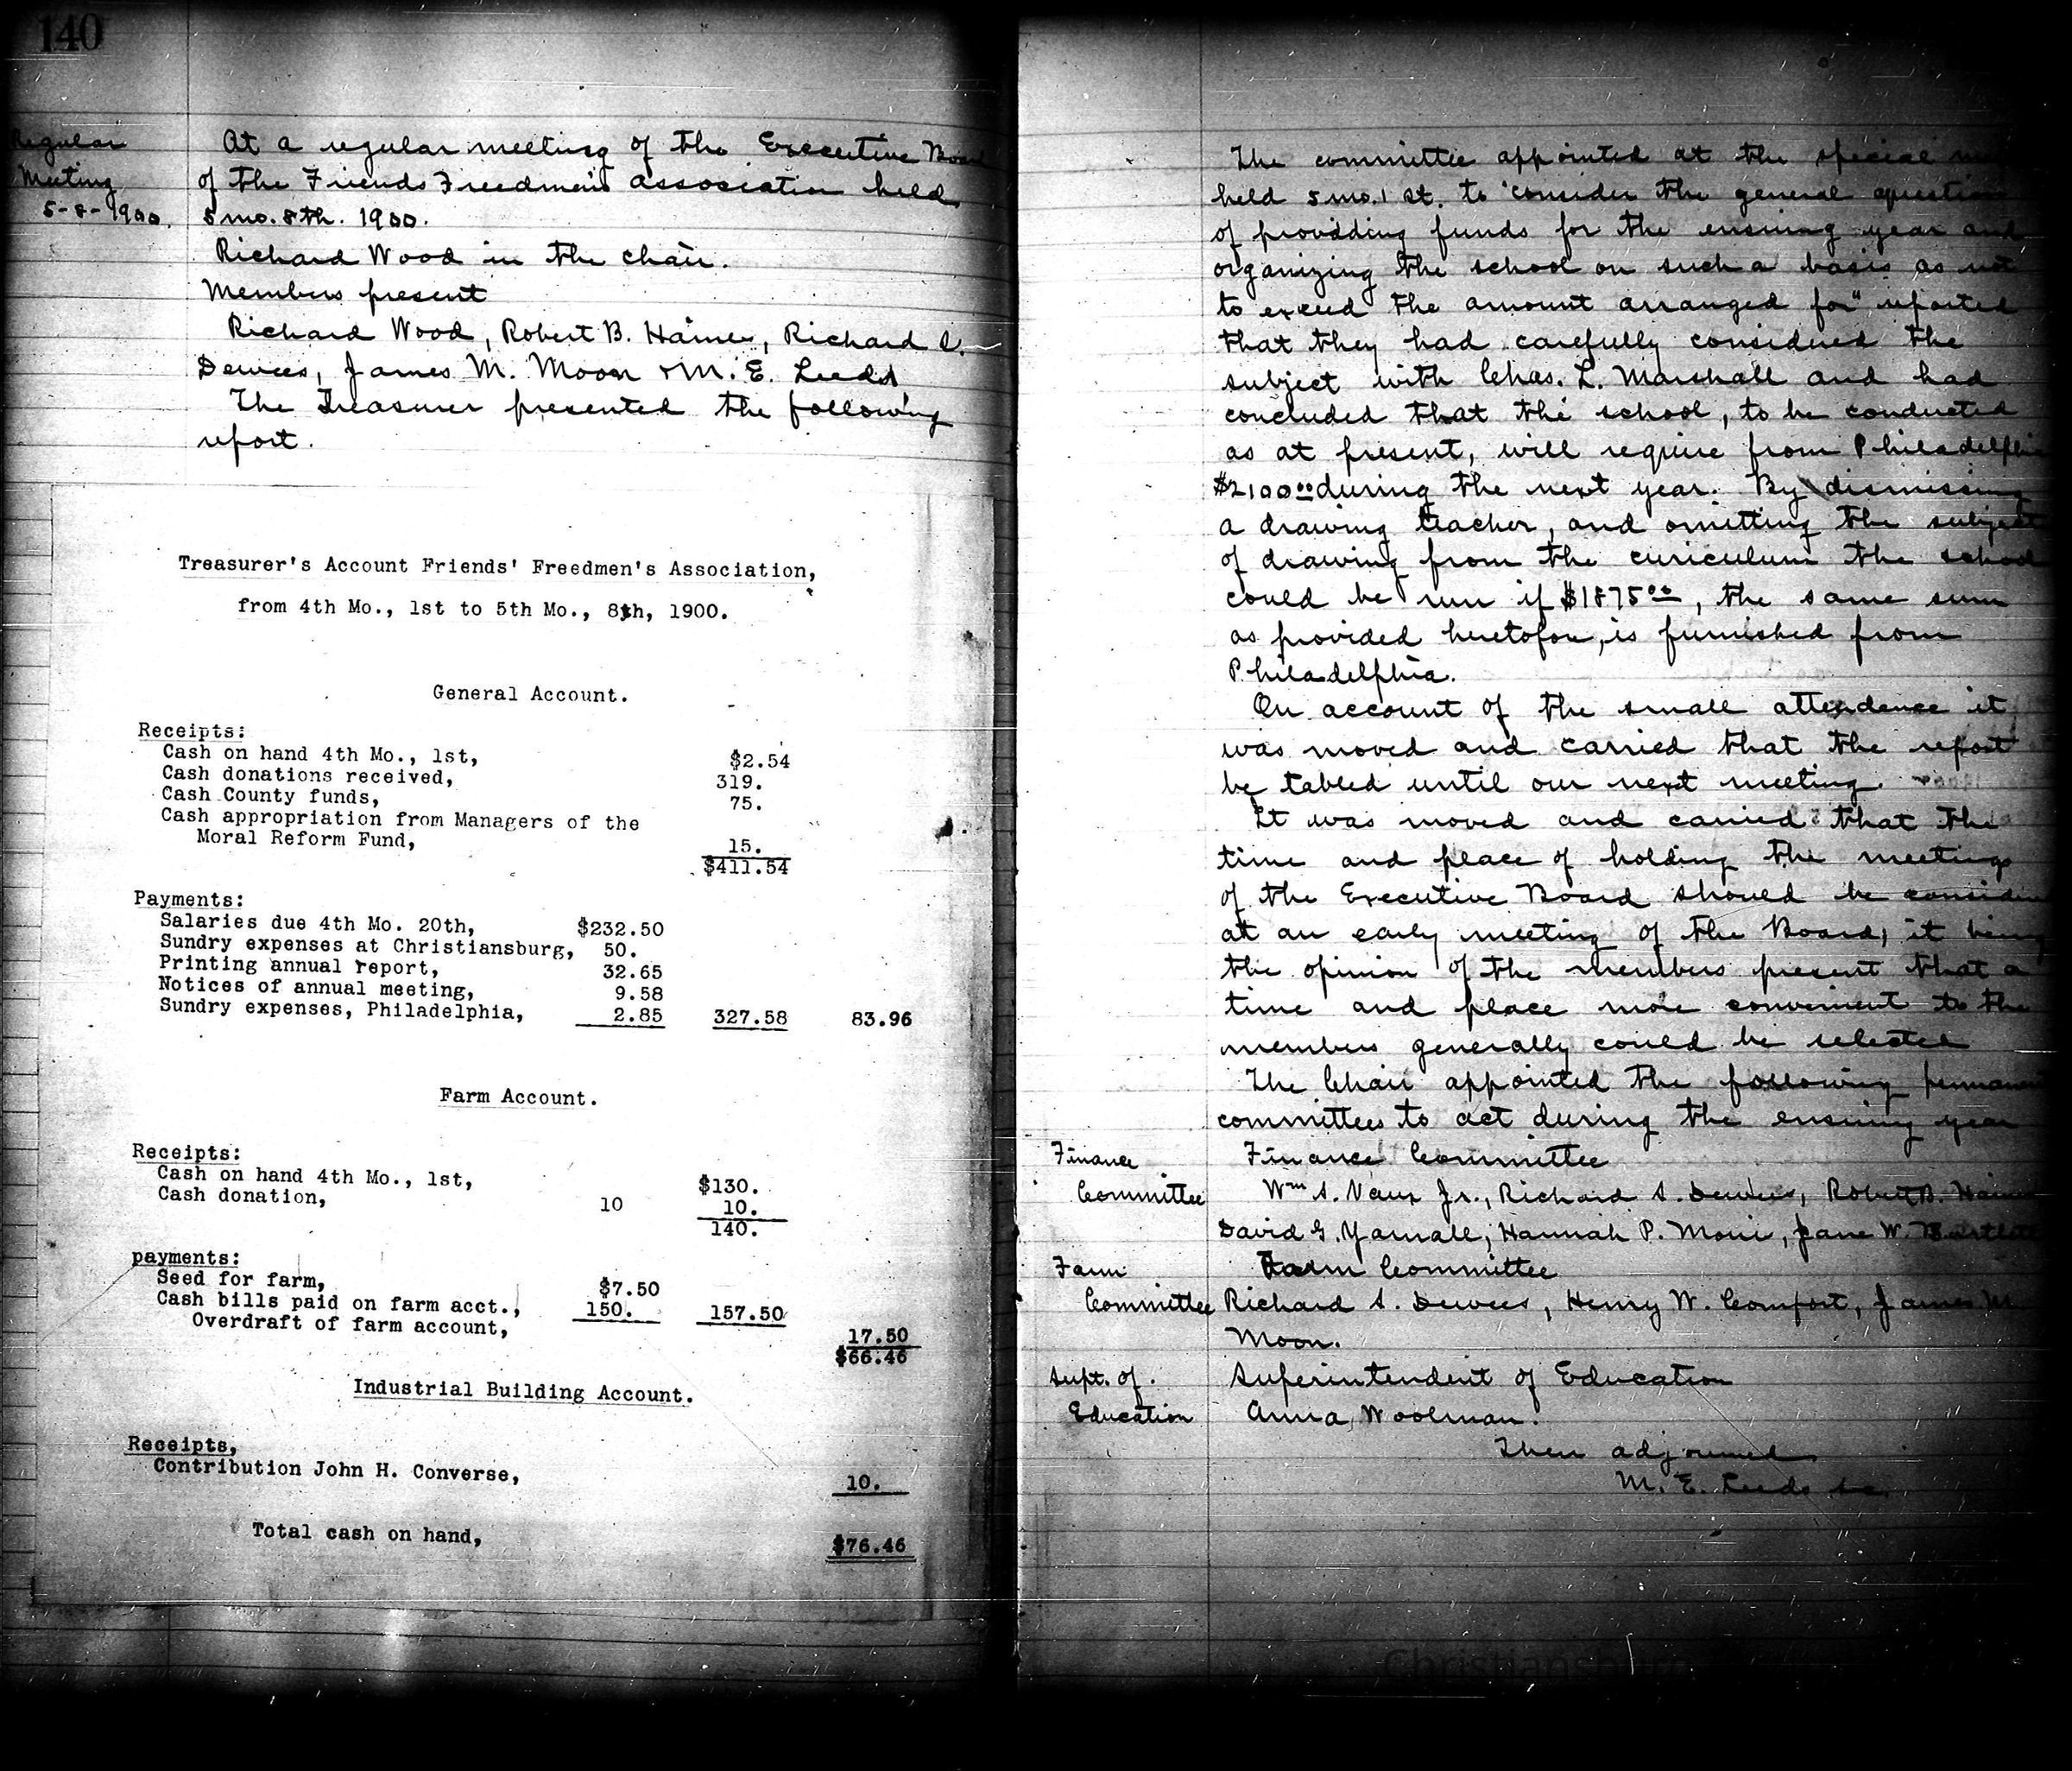 140
Regular
Meeting
5-8-1900.
At a regular meeting of the Executive Board
of the Friends Freedmen's Association held
5 mo. 8th. 1900.
Richard Wood in the chair.
Members present
Richard Wood, Robert B. Haines, Richard S.
Dewees, James M. Moon & M. E. Leeds
The Treasurer presented the following
report.
Treasurer's Account Friends' Freedmen's Association,
from 4th Mo., 1st to 5th Mo., 8th, 1900.
General Account.
Receipts:
Cash on hand 4th Mo., 1st, $2.54
Cash donations received, 319.
Cash County funds, 75.
Cash appropriation from Managers of the
Moral Reform Fund, 15.
$411.54
Payments:
Salaries due 4th Mo. 20th, $232.50
Sundry expenses at Christiansburg, 50.
Printing annual report, 32.65
Notices of annual meeting, 9.58
Sundry expenses, Philadelphia, 2.85 327.58 83.96
Farm Account.
Receipts:
Cash on hand 4th Mo., 1st, $130.
Cash donation, 10 10.
140.
payments:
Seed for farm, $7.50
Cash bills paid on farm acct., 150. 157.50
Overdraft of farm account, 17.50
$66.46
Industrial Building Account.
Receipts,
Contribution John H. Converse, 10.
Total cash on hand, $76.46
The committee appointed at the special
held 5 mo. 1 st. to "consider the general question
of providing funds for the ensuing year and
organizing the school on such a basis as not
to exceed the amount arranged for" reported
that they had carefully considered the
subject with Chas. L. Marshall and had
concluded that the school, to be conducted
as at present, will require from Philadelphia
$2100.00 during the next year. By dismissing
a drawing teacher, and omitting the subject
of drawing from the curiculum the school
could be run if $1875.00, the same sum
as provided heretofore, is furnished from
Philadelphia.
On account of the small attendance it
was moved and carried that the report
be tabled until our next meeting.
It was moved and carried that the
time and place of holding the meetings
of the Executive Board should be
at an early meeting of the Board, it being
the opinion of the members present that a
time and place more convenient to the
members generally could be selected
The Chair appointed the following permanent
committees to act during the ensuing year
Finance
Committee
Finance Committee
Wm S. Vaux Jr., Richard S. Dewees, Robert B. Haines
David G. Yarnall, Hannah P. Morris, Jane W. Bartlett
Farm
Committee
Farm Committee
Richard S. Dewees, Henry W. Comfort, James M
Moon.
Supt. of.
Education
Superintendent of Education
Anna Woolman.
Then adjourned
M. E. Leeds Sec.